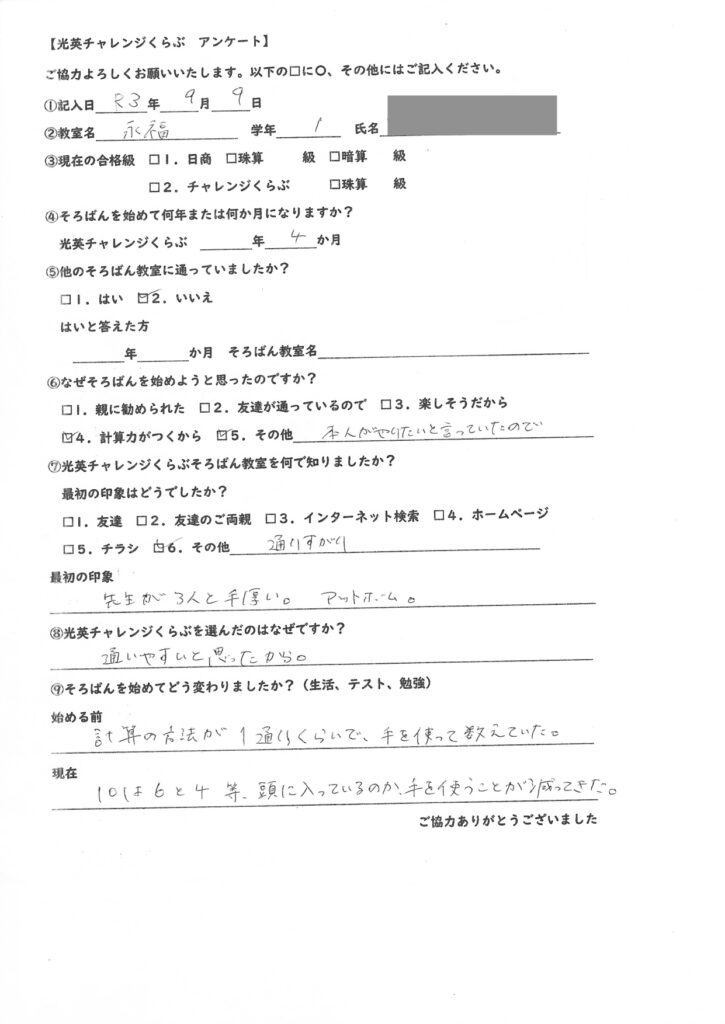 【光英チャレンジくらぶ アンケート】
ご協力よろしくお願いいたします。以下の□に○、その他にはご記入ください。
①記入日 R3年 9月 9日
②教室名 永福 学年 1 氏名
③現在の合格級 □1．日商 □珠算 級 □暗算 級
□2．チャレンジくらぶ □珠算 級
④そろばんを始めて何年または何か月になりますか？
光英チャレンジくらぶ 年 4か月
⑤他のそろばん教室に通っていましたか？
□1．はい ☑2．いいえ
はいと答えた方
年 か月 そろばん教室名
⑥なぜそろばんを始めようと思ったのですか？
□1．親に勧められた □2．友達が通っているので □3．楽しそうだから
☑4．計算力がつくから ☑5．その他 本人がやりたいと言っていたので
⑦光英チャレンジくらぶそろばん教室を何で知りましたか？
最初の印象はどうでしたか？
□1．友達 □2．友達のご両親 □3．インターネット検索 □4．ホームページ
□5．チラシ ☑6．その他 通りすがり
最初の印象
先生が3人と手厚い。 アットホーム。
⑧光英チャレンジくらぶを選んだのはなぜですか？
通いやすいと思ったから。
⑨そろばんを始めてどう変わりましたか？（生活、テスト、勉強）
始める前
計算の方法が1通りくらいで、手を使って数えていた。
現在
10は6と4等、頭に入っているのか、手を使うことが減ってきた。
ご協力ありがとうございました